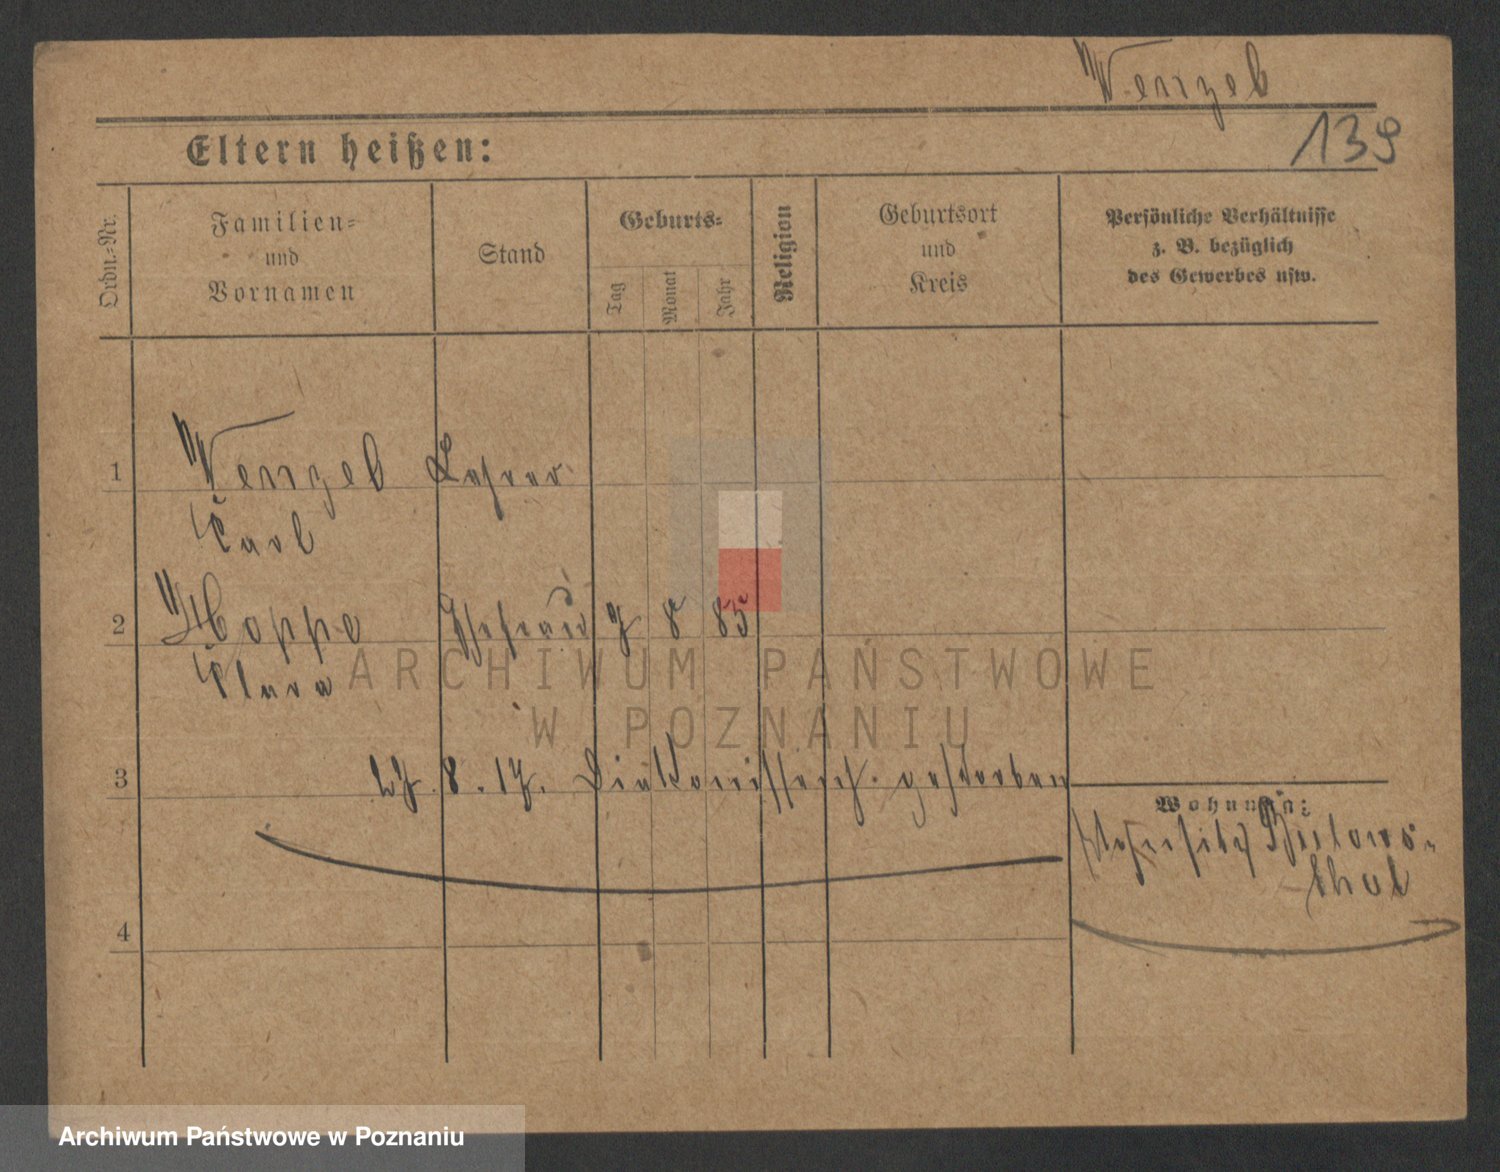 Wenzel
139
Eltern heißen:
Ordn.-Nr.
Familien-
und
Vornamen
Stand
Geburts-
Tag
Monat
Jahr
Religion
Geburtsort
und
Kreis
Persönliche Verhältnisse
z. B. bezüglich
des Gewerbes usw.
1
Wenzel
Lehrer
Carl
2
Hoppe
Ehefrau
8
85
Clara
ARCHIWUM PAŃSTWOWE
W POZNANIU
3
8. 17. gestorben
Wohnung:
thal
4
Archiwum Państwowe w Poznaniu